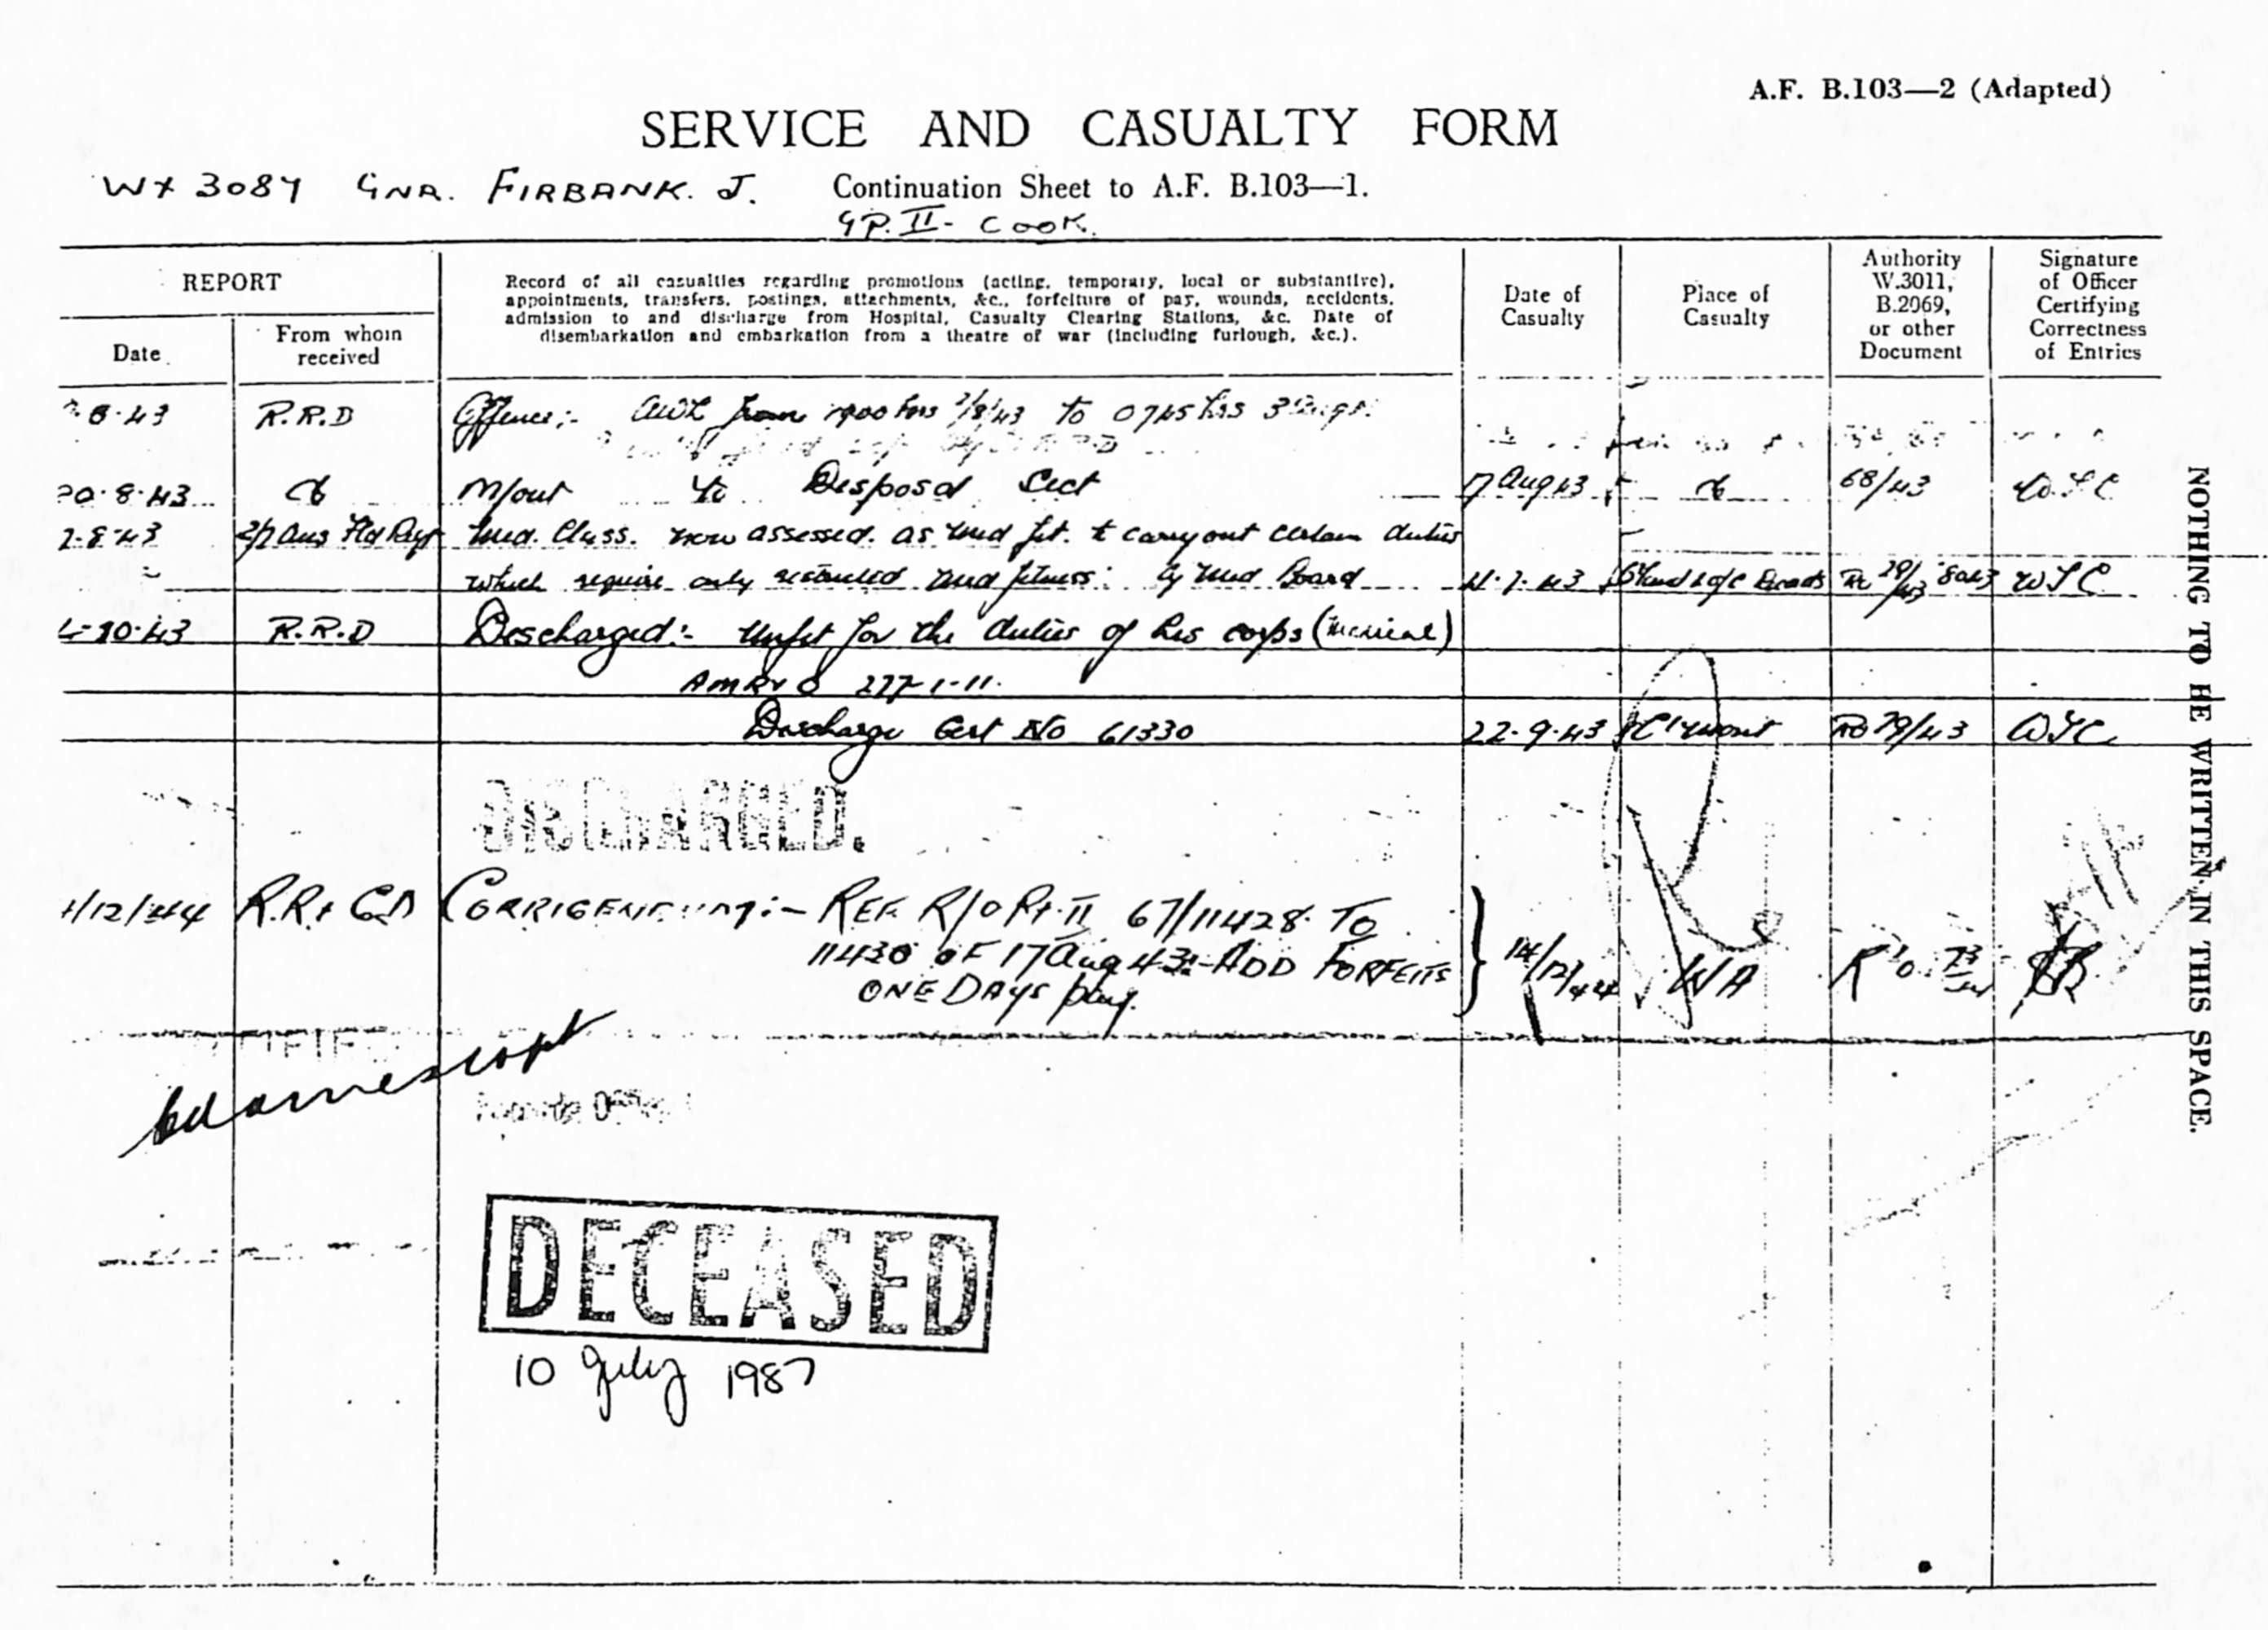 A.F. B.103—2 (Adapted)
SERVICE AND CASUALTY FORM
WX 3087 GNR. FIRBANK. J. Continuation Sheet to A.F. B.103—1.
GP. II - COOK.
REPORT
Date
From whom received
Record of all casualties regarding promotions (acting, temporary, local or substantive),
appointments, transfers, postings, attachments, &c., forfeiture of pay, wounds, accidents,
admission to and discharge from Hospital, Casualty Clearing Stations, &c. Date of
disembarkation and embarkation from a theatre of war (including furlough, &c.).
Date of Casualty
Place of Casualty
Authority W.3011, B.2069, or other Document
Signature of Officer Certifying Correctness of Entries
8.43 R.R.D Offence:- AWL from 1900 hrs 2/8/43 to 0745 hrs 3 Aug
20.8.43 M/out to Disposal Sect 17 Aug 43 68/43
2/7 Aus Fld Regt Med. Class. now assessed. as med fit. to carry out certain duties
which require only restricted med fitness: by Med Board 29/43
10.43 R.R.D Discharged:- Unfit for the duties of his corps (medical)
AMR&O 277-1-11.
Discharge Cert No 61330 22.9.43 RO 79/43
DISCHARGED.
/12/44 R.R. & G.D CORRIGENDUM:- REF R/O Pt. II 67/11428 TO
11430 OF 17 Aug 43:- ADD FORFEITS
ONE DAYS pay.
14/12/44 WA
DECEASED
10 July 1987
NOTHING TO BE WRITTEN IN THIS SPACE.